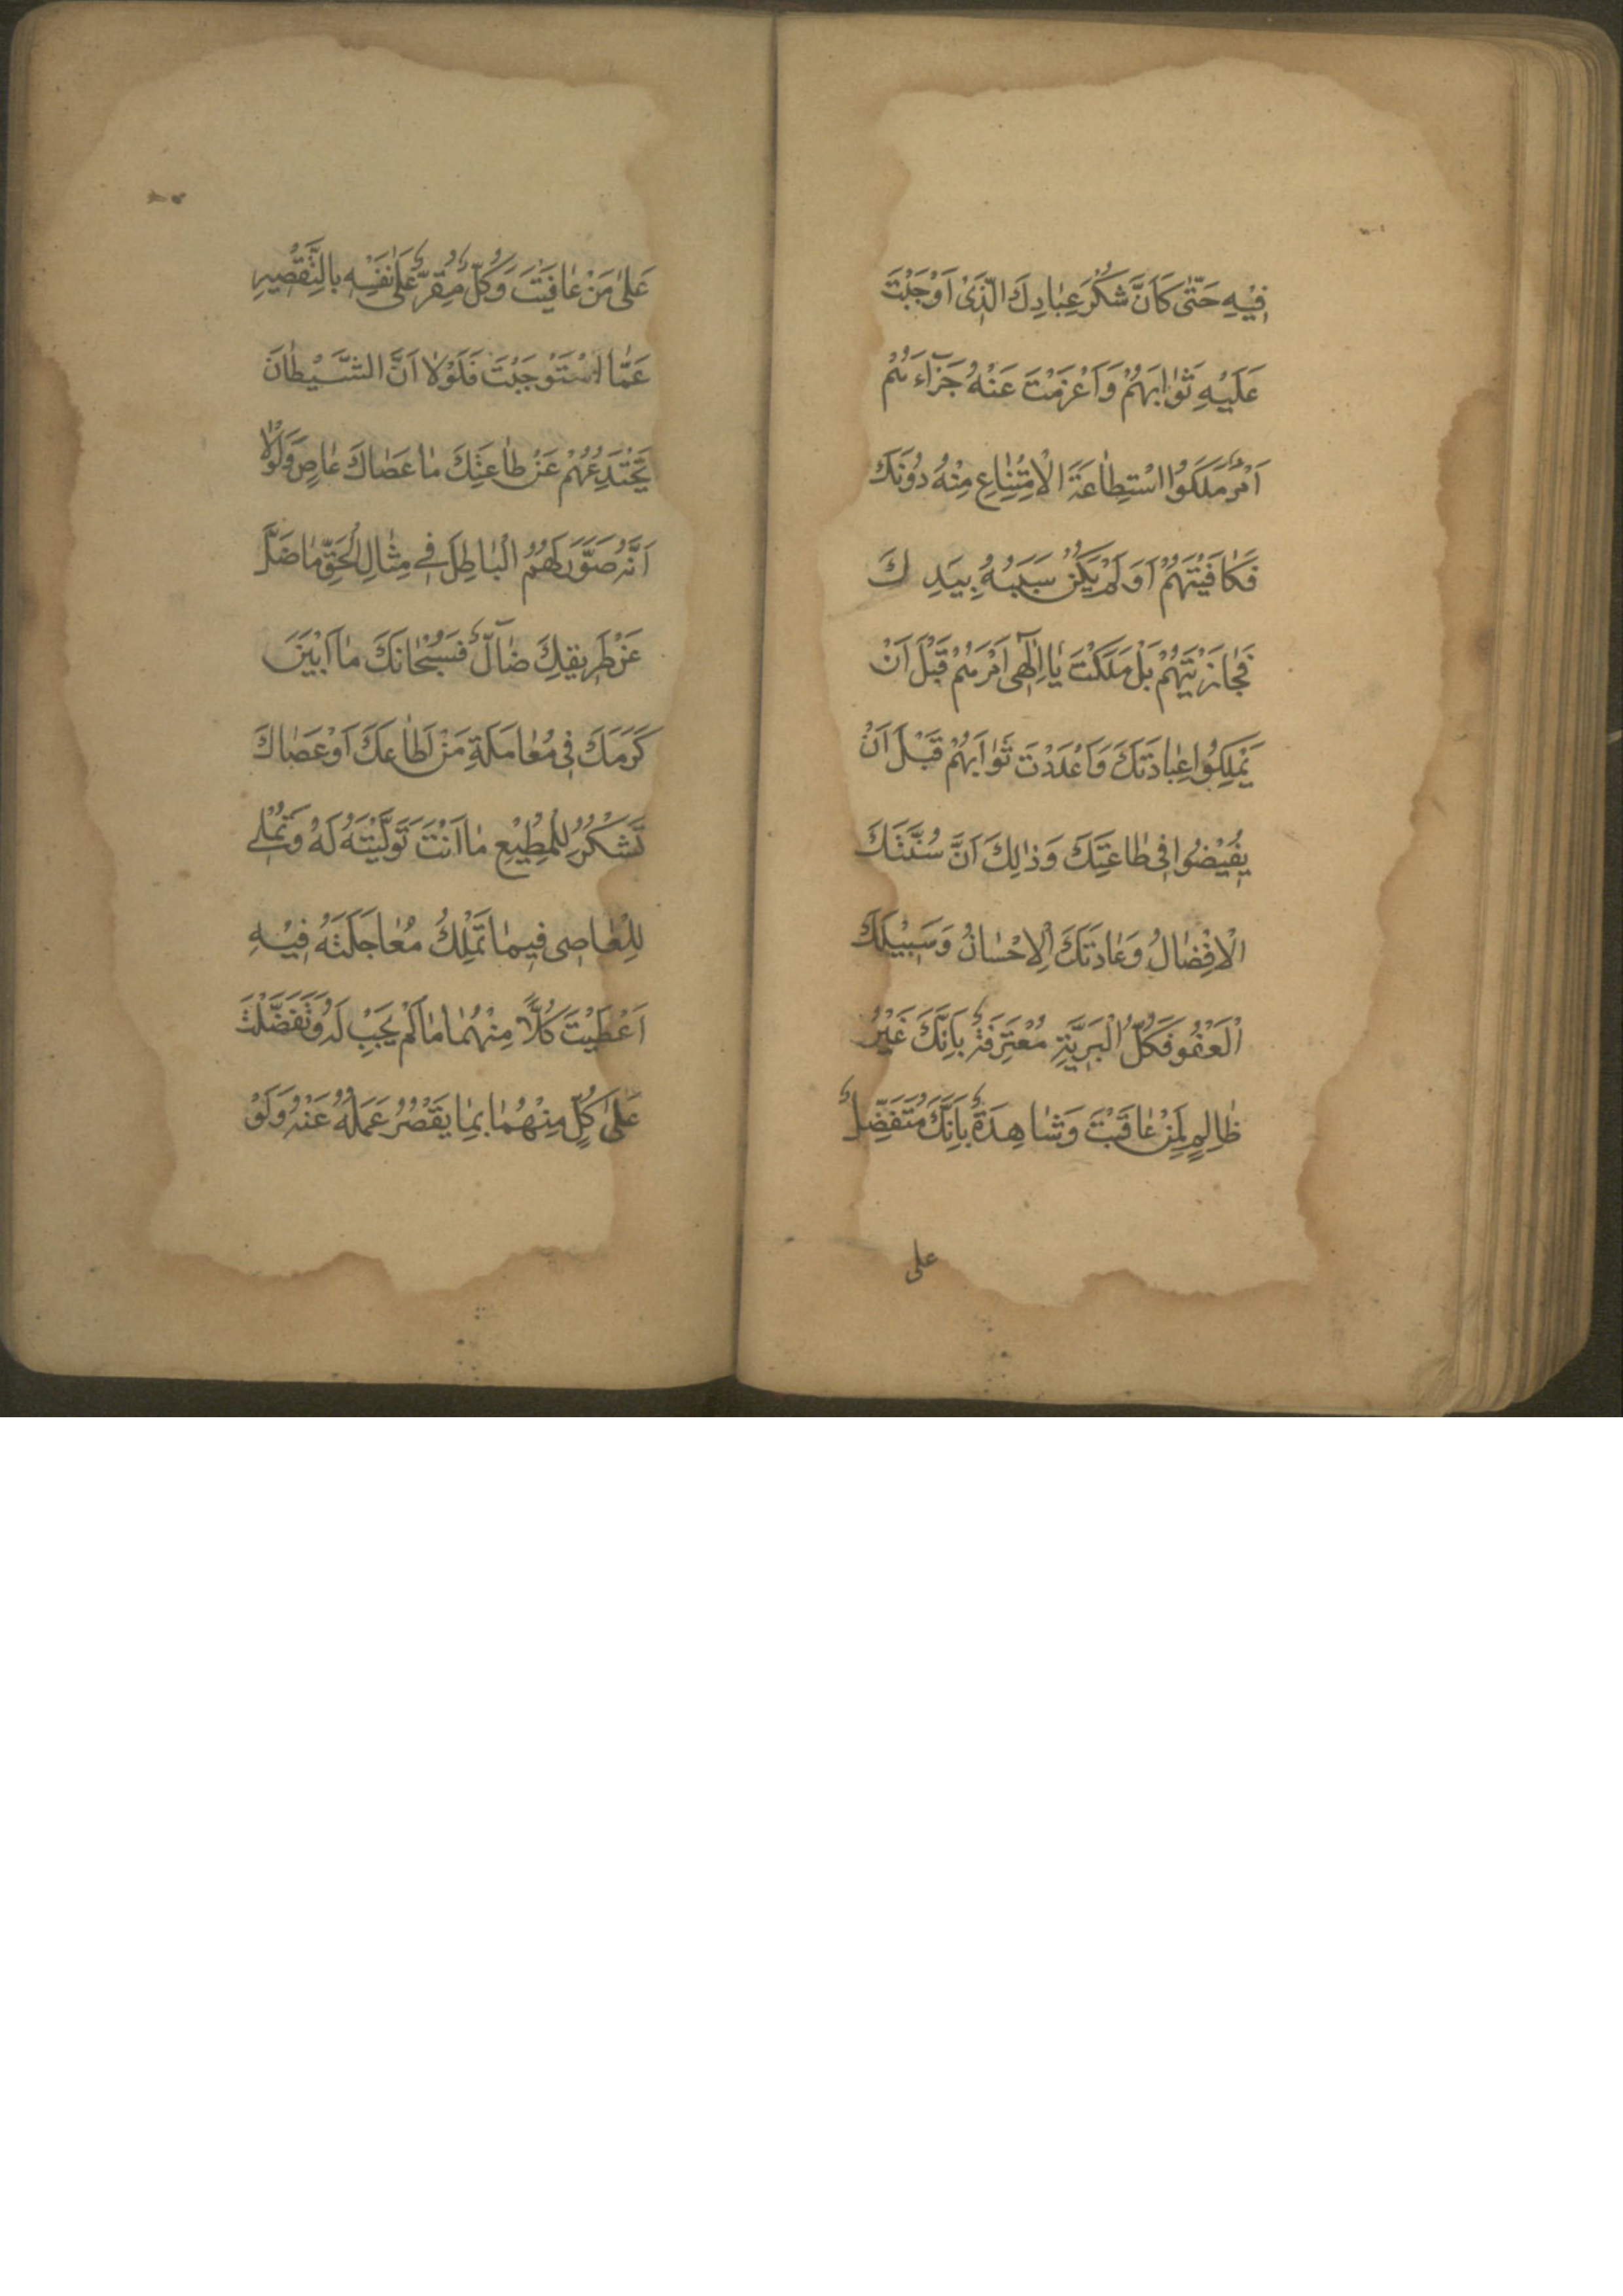 فِيْهِ حَتّٰى كَاَنَّ شُكْرَ عِبٰادِكَ الَّذِىْ اَوْجَبْتَ
عَلَيْهِ ثَوٰابَهُمْ وَاَعْزَمْتَ عَنْهُ جَزٰآءَهُمْ
اَمْرٌ مَلَكُوْا اسْتِطٰاعَةَ الْاِمْتِنٰاعِ مِنْهُ دُوْنَكَ
فَكٰافَيْتَهُمْ اَوَلَمْ يَكُنْ سَبَبُهُ بِيَدِكَ
فَجٰازَيْتَهُمْ بَلْ مَلَكْتَ يٰا اِلٰهِى اَمْرَهُمْ قَبْلَ اَنْ
يَمْلِكُوْا عِبٰادَتَكَ وَاَعْدَدْتَ ثَوٰابَهُمْ قَبْلَ اَنْ
يُفِيْضُوْا فِى طٰاعَتِكَ وَذٰلِكَ اَنَّ سُنَّتَكَ
الْاِفْضٰالُ وَعٰادَتَكَ الْاِحْسٰانُ وَسَبِيْلَكَ
الْعَفْوُ فَكُلُّ الْبَرِيَّةِ مُعْتَرِفَةٌ بِاَنَّكَ غَيْرُ
ظٰالِمٍ لِمَنْ عٰاقَبْتَ وَشٰاهِدَةٌ بِاَنَّكَ مُتَفَضِّلٌ
على
عَلىٰ مَنْ عٰافَيْتَ وَكُلٌّ مُقِرٌّ عَلىٰ نَفْسِهِ بِالتَّقْصِيرِ
عَمَّا اسْتَوْجَبْتَ فَلَوْلٰا اَنَّ الشَّيْطٰانَ
يَخْتَدِعُهُمْ عَنْ طٰاعَتِكَ مٰا عَصٰاكَ عٰاصٍ وَلَوْلٰا
اَنَّهُ صَوَّرَ لَهُمُ الْبٰاطِلَ فِى مِثٰالِ الْحَقِّ مٰا ضَلَّ
عَنْ طَرِيقِكَ ضٰآلٌّ فَسُبْحٰانَكَ مٰا اَبْيَنَ
كَرَمَكَ فِى مُعٰامَلَةِ مَنْ اَطٰاعَكَ اَوْ عَصٰاكَ
تَشْكُرُ لِلْمُطِيْعِ مٰا اَنْتَ تَوَلَّيْتَهُ لَهُ وَتُمْلِى
لِلْعٰاصِى فِيمٰا تَمْلِكُ مُعٰاجَلَتَهُ فِيْهِ
اَعْطَيْتَ كُلًّا مِنْهُمٰا مٰا لَمْ يَجِبْ لَهُ وَتَفَضَّلْتَ
عَلىٰ كُلٍّ مِنْهُمٰا بِمٰا يَقْصُرُ عَمَلُهُ عَنْهُ وَلَوْ